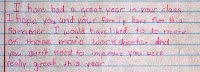 I have had a great year in your class.
I hope you and your family have fun this
summer. I would have liked to do more
of those movie worksheets. And
you don't need to improve you were
really great this year.